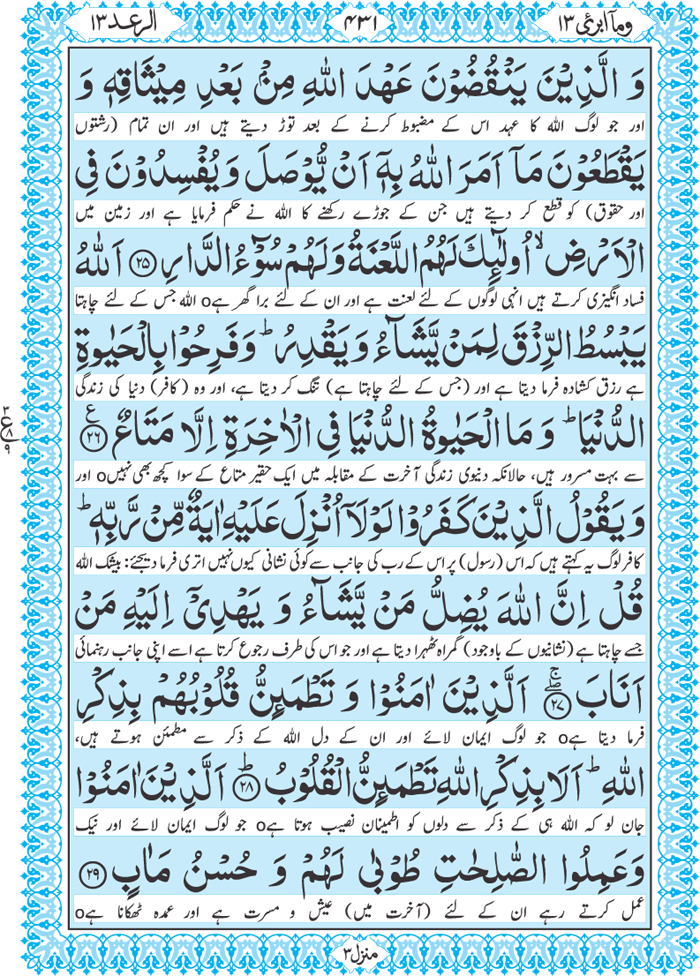 وماۤ ابرئ ۱۳
۴۳۱
الرعد ۱۳
وَ الَّذِیْنَ یَنْقُضُوْنَ عَهْدَ اللّٰهِ مِنْۢ بَعْدِ مِیْثَاقِهٖ وَ
اور جو لوگ اللہ کا عہد اس کے مضبوط کرنے کے بعد توڑ دیتے ہیں اور ان تمام (رشتوں
یَقْطَعُوْنَ مَاۤ اَمَرَ اللّٰهُ بِهٖۤ اَنْ یُّوْصَلَ وَ یُفْسِدُوْنَ فِی
اور حقوق) کو قطع کر دیتے ہیں جن کے جوڑے رکھنے کا اللہ نے حکم فرمایا ہے اور زمین میں
الْاَرْضِ ۙ اُولٰٓىِٕكَ لَهُمُ اللَّعْنَةُ وَ لَهُمْ سُوْٓءُ الدَّارِ ﴿۲۵﴾ اَللّٰهُ
فساد انگیزی کرتے ہیں انہی لوگوں کے لئے لعنت ہے اور ان کے لئے برا گھر ہےo اللہ جس کے لئے چاہتا
یَبْسُطُ الرِّزْقَ لِمَنْ یَّشَآءُ وَ یَقْدِرُ ؕ وَ فَرِحُوْا بِالْحَیٰوةِ
ہے رزق کشادہ فرما دیتا ہے اور (جس کے لئے چاہتا ہے) تنگ کر دیتا ہے، اور وہ (کافر) دنیا کی زندگی
الدُّنْیَا ؕ وَ مَا الْحَیٰوةُ الدُّنْیَا فِی الْاٰخِرَةِ اِلَّا مَتَاعٌ ﴿۲۶﴾ ع
سے بہت مسرور ہیں، حالانکہ دنیوی زندگی آخرت کے مقابلہ میں ایک حقیر متاع کے سوا کچھ بھی نہیںo اور
وَ یَقُوْلُ الَّذِیْنَ كَفَرُوْا لَوْ لَاۤ اُنْزِلَ عَلَیْهِ اٰیَةٌ مِّنْ رَّبِّهٖ ؕ
کافر لوگ یہ کہتے ہیں کہ اس (رسول) پر اس کے رب کی جانب سے کوئی نشانی کیوں نہیں اتری فرما دیجئے: بیشک اللہ
قُلْ اِنَّ اللّٰهَ یُضِلُّ مَنْ یَّشَآءُ وَ یَهْدِیْۤ اِلَیْهِ مَنْ
جسے چاہتا ہے (نشانیوں کے باوجود) گمراہ ٹھہرا دیتا ہے اور جو اس کی طرف رجوع کرتا ہے اسے اپنی جانب رہنمائی
اَنَابَ ﴿۲۷﴾ۖۚ اَلَّذِیْنَ اٰمَنُوْا وَ تَطْمَىِٕنُّ قُلُوْبُهُمْ بِذِكْرِ
فرما دیتا ہےo جو لوگ ایمان لائے اور ان کے دل اللہ کے ذکر سے مطمئن ہوتے ہیں،
اللّٰهِ ؕ اَلَا بِذِكْرِ اللّٰهِ تَطْمَىِٕنُّ الْقُلُوْبُ ﴿۲۸﴾ؕ اَلَّذِیْنَ اٰمَنُوْا
جان لو کہ اللہ ہی کے ذکر سے دلوں کو اطمینان نصیب ہوتا ہےo جو لوگ ایمان لائے اور نیک
وَ عَمِلُوا الصّٰلِحٰتِ طُوْبٰی لَهُمْ وَ حُسْنُ مَاٰبٍ ﴿۲۹﴾
عمل کرتے رہے ان کے لئے (آخرت میں) عیش و مسرت ہے اور عمدہ ٹھکانا ہےo
منزل ۳